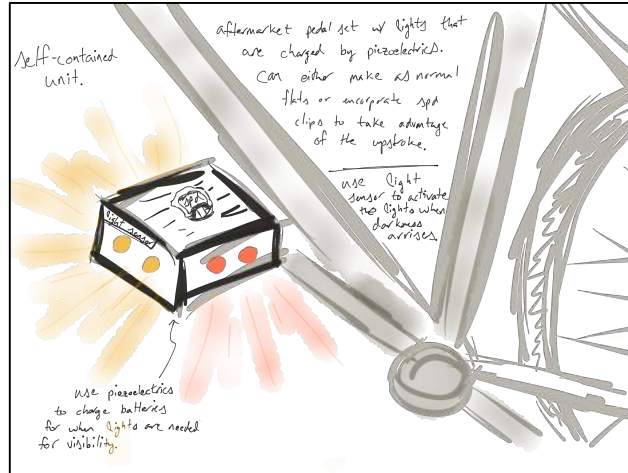 self-contained
unit.
aftermarket pedal set w/ lights that
are charged by piezoelectrics.
Can either make as normal
flats or encorporate spd
clips to take advantage
of the upstroke.
use light
sensor to activate
the lights when
darkness
arrises.
spd
light sensor
use piezoelectrics
to charge batteries
for when lights are needed
for visibility.